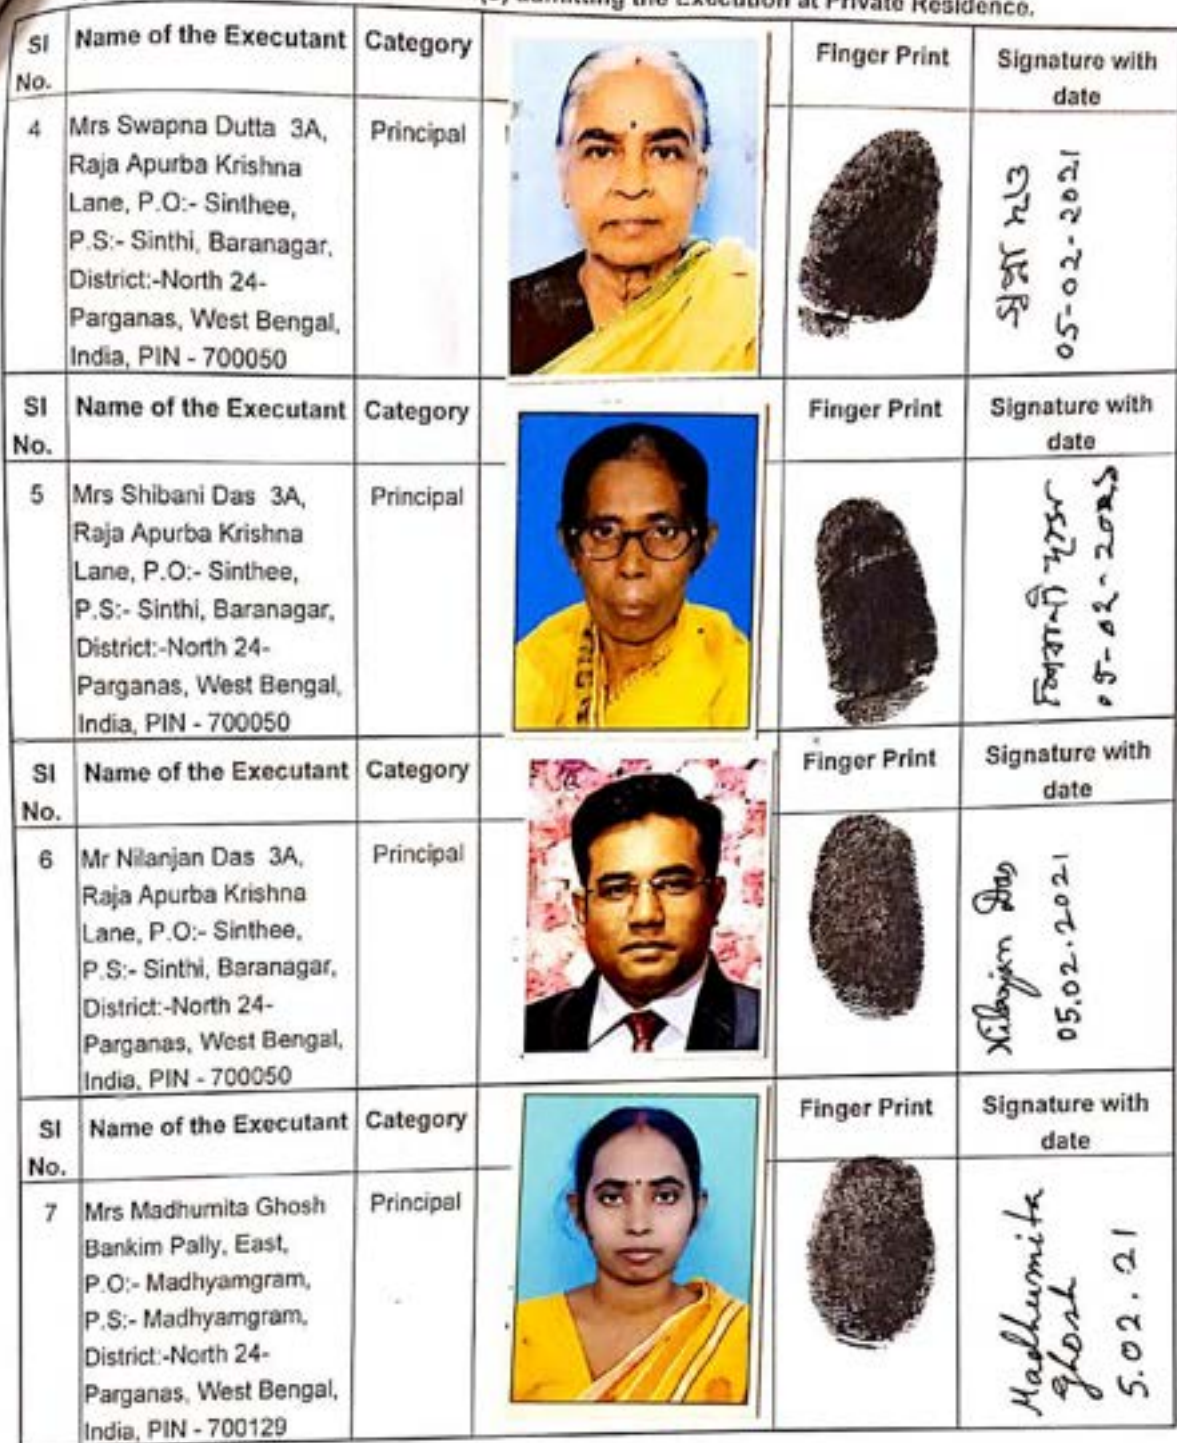 (s) admitting the Execution at Private Residence.
Sl No.
Name of the Executant
Category
Finger Print
Signature with date
4
Mrs Swapna Dutta 3A,
Raja Apurba Krishna
Lane, P.O:- Sinthee,
P.S:- Sinthi, Baranagar,
District:-North 24-
Parganas, West Bengal,
India, PIN - 700050
Principal
স্বপ্না দত্ত
05-02-2021
Sl No.
Name of the Executant
Category
Finger Print
Signature with date
5
Mrs Shibani Das 3A,
Raja Apurba Krishna
Lane, P.O:- Sinthee,
P.S:- Sinthi, Baranagar,
District:-North 24-
Parganas, West Bengal,
India, PIN - 700050
Principal
Sl No.
Name of the Executant
Category
Finger Print
Signature with date
6
Mr Nilanjan Das 3A,
Raja Apurba Krishna
Lane, P.O:- Sinthee,
P.S:- Sinthi, Baranagar,
District:-North 24-
Parganas, West Bengal,
India, PIN - 700050
Principal
Nilanjan Das
05.02.2021
Sl No.
Name of the Executant
Category
Finger Print
Signature with date
7
Mrs Madhumita Ghosh
Bankim Pally, East,
P.O:- Madhyamgram,
P.S:- Madhyamgram,
District:-North 24-
Parganas, West Bengal,
India, PIN - 700129
Principal
Madhumita
Ghosh
5.02.21